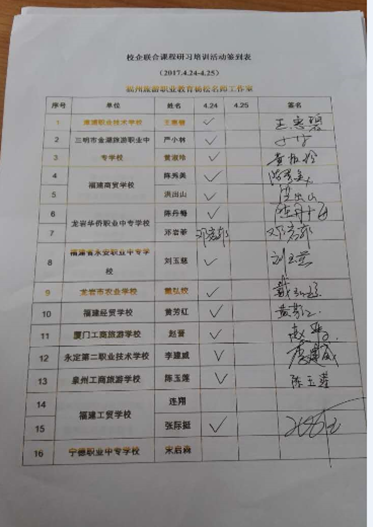 校企联合课程研习培训活动签到表
(2017.4.24-4.25)
福州旅游职业教育杨松名师工作室
序号 单位 姓名 4.24 4.25 签名
1 漳浦职业技术学校 王惠碧 ✓ 王惠碧
2 三明市金湖旅游职业中 严小林 ✓
3 专学校 黄淑珍 ✓ 黄淑珍
4 陈秀美 ✓ 陈秀美
福建商贸学校
5 洪出山 ✓ 洪出山
6 陈丹 ✓
龙岩华侨职业中专学校
7 邓岩 邓 邓
8 福建省永安职业中专学 刘玉 ✓ 刘玉
校
9 龙岩市农业学校 戴弘校 ✓ 戴
10 福建经贸学校 黄芳红 ✓ 黄芳红
11 厦门工商旅游学校 赵晋 ✓ 赵晋
12 永定第二职业技术学校 李建威 ✓ 李建威
13 泉州工商旅游学校 陈玉莲 ✓ 陈玉莲
14 连翔
福建工贸学校
15 张际挺 ✓
16 宁德职业中专学校 宋启